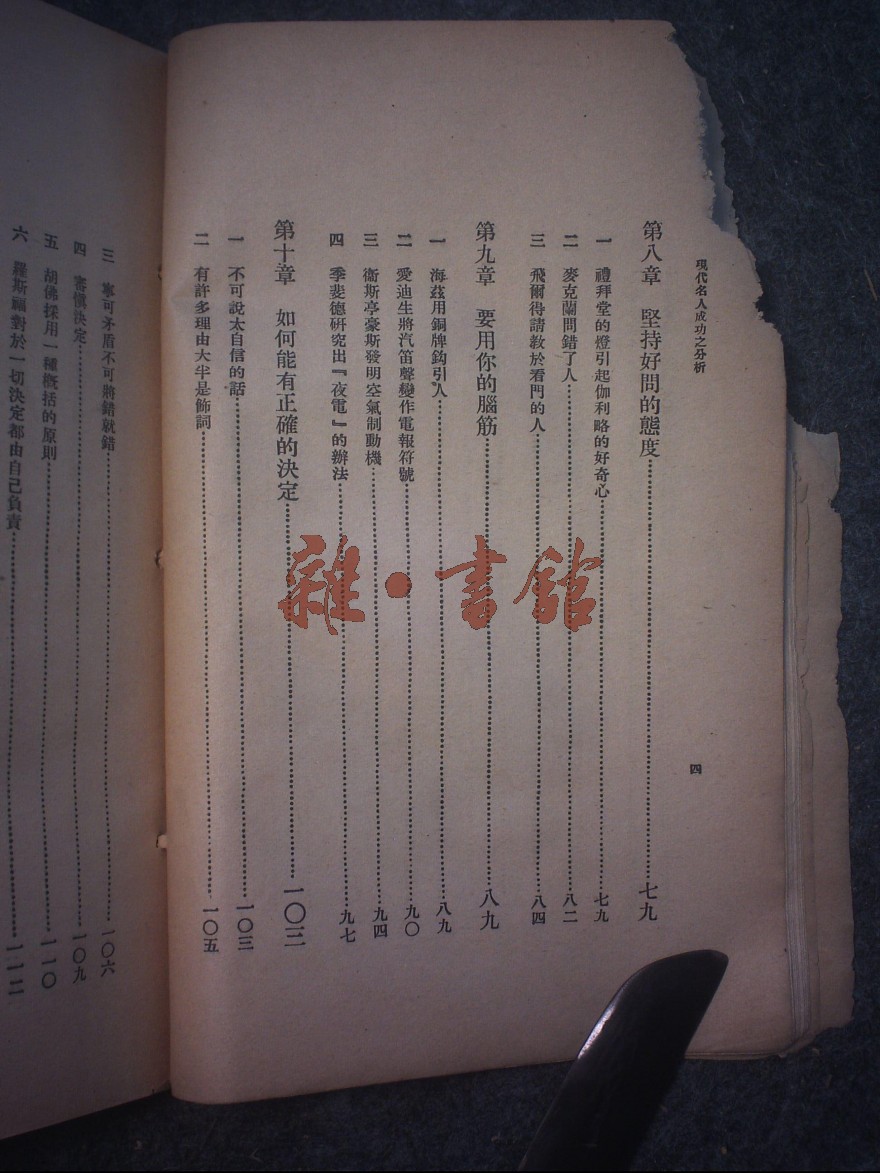 現代名人成功之分析
四
第八章 堅持好問的態度………七九
一 禮拜堂的燈引起伽利略的好奇心………七九
二 麥克蘭問錯了人………八二
三 飛爾待請教於看門的人………八四
第九章 要用你的腦筋………八九
一 海茲用銅牌鈎引人………八九
二 愛迪生將汽笛聲變作電報符號………九〇
三 衞斯亭豪斯發明空氣制動機………九四
四 季斐德研究出『夜電』的辦法………九七
第十章 如何能有正確的決定………一〇三
一 不可說太自信的話………一〇三
二 有許多理由大半是飾詞………一〇五
三 寧可矛盾不可將錯就錯………一〇六
四 審愼決定………一〇九
五 胡佛採用一種概括的原則………一一〇
六 羅斯福對於一切決定都由自己負責………一一二
雜·書館